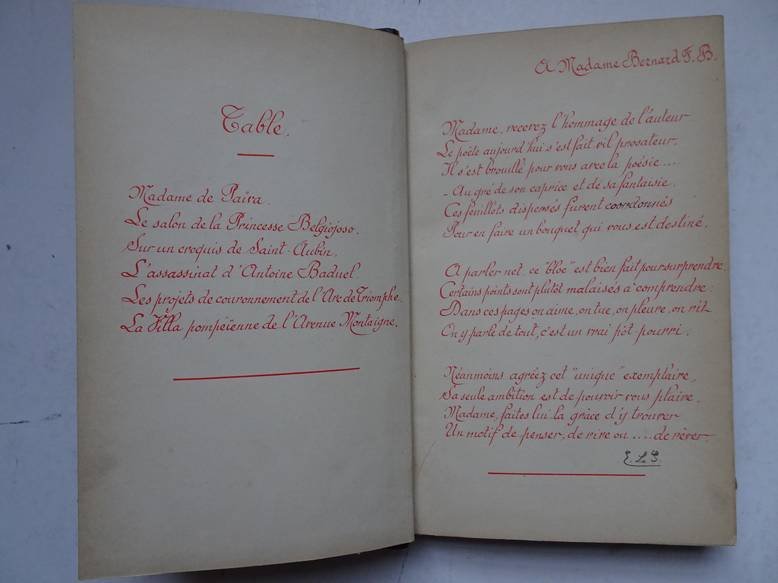 Table.
Madame de Païva.
Le salon de la Princesse Belgiojoso.
Sur un croquis de Saint-Aubin.
L'assassinat d'Antoine Baduel
Les projets de couronnement de l'Arc de Triomphe
La Villa pompéïenne de l'Avenue Montaigne.
A Madame Bernard F. B.
Madame, recevez l'hommage de l'auteur
Le poëte aujourd'hui s'est fait vil prosateur.
Il s'est brouillé pour vous avec la poésie...
- Au gré de son caprice et de sa fantaisie.
Ces feuillets dispersés furent coordonnés
Pour en faire un bouquet qui vous est destiné.
A parler net ce "bloc" est bien fait pour surprendre
Certains points sont plutôt malaisés à comprendre:
Dans ces pages on aime, on tue, on pleure, on rit
On y parle de tout, c'est un vrai pôt-pourri.
Néanmoins agréez cet "unique" exemplaire,
Sa seule ambition est de pouvoir vous plaire.
Madame, faites lui la grâce d'y trouver
Un motif de penser, de rire ou .... de rêver.